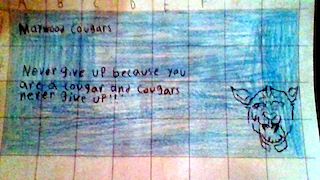 A B C D E F
Marwood Cougars
Never give up because you
are a cougar and cougars
never give up!!